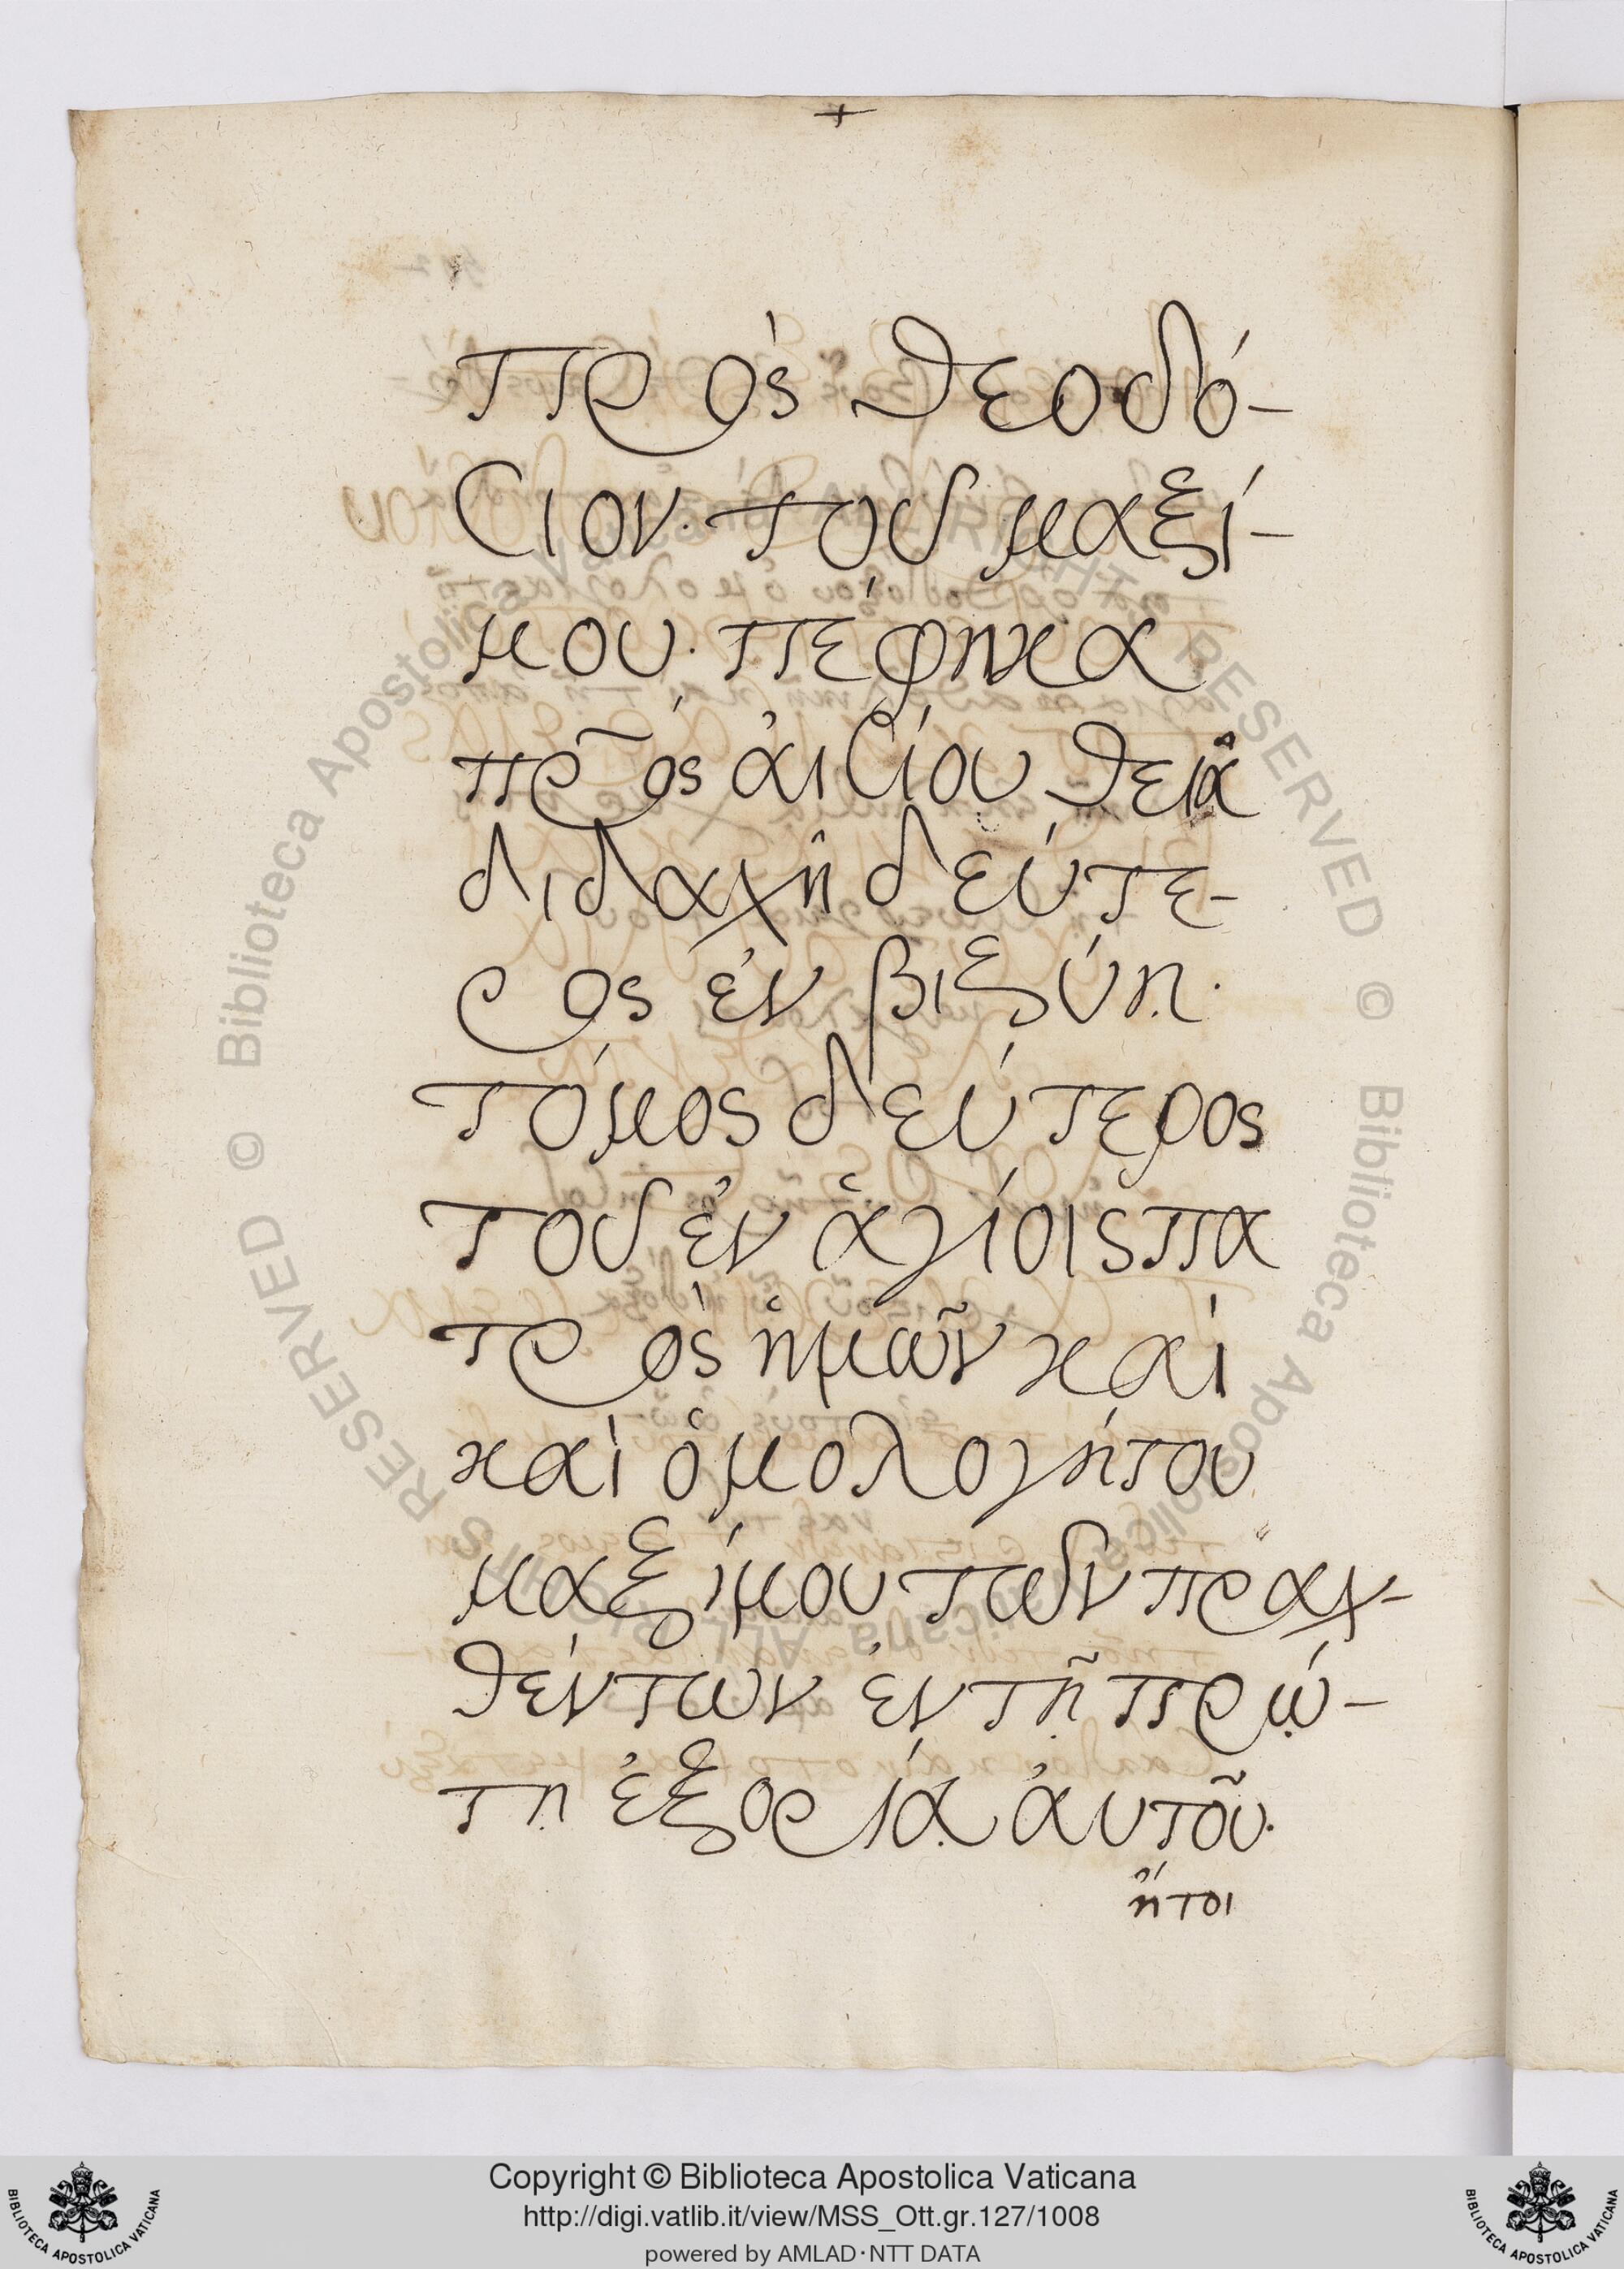 +
πρὸς θεοδό-
σιον. τοῦ μαξί-
μου. πέφηκα
πρ͂ος ἀισίου θεία
διδαχῆ δεύτε-
ρος ἐν βιξύῃ.
τόμος δεύτερος
τοῦ ἐν ἁγίοις πα
τρὸς ἡμῶν καὶ
καὶ ὁμολογήτου
μαξίμου τῶν πραχ-
θέντων ἐν τῇ πρώ-
τῃ ἐξορίᾳ ἀυτοῦ.
ἤτοι
© Biblioteca Apostolica Vaticana ALL RIGHTS RESERVED © Biblioteca Apostolica Vaticana ALL RIGHTS RESERVED
Copyright © Biblioteca Apostolica Vaticana
http://digi.vatlib.it/view/MSS_Ott.gr.127/1008
powered by AMLAD·NTT DATA
BIBLIOTECA APOSTOLICA VATICANA
BIBLIOTECA APOSTOLICA VATICANA